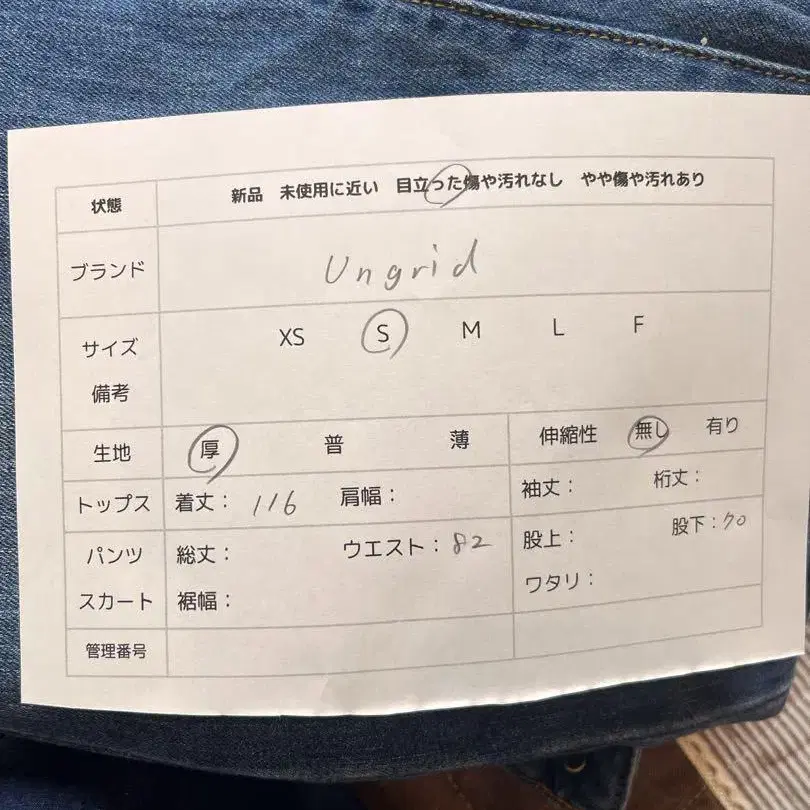 状態 新品 未使用に近い 目立った傷や汚れなし やや傷や汚れあり
ブランド Ungrid
サイズ XS S M L F
備考
生地 厚 普 薄 伸縮性 無し 有り
トップス 着丈： 116 肩幅： 袖丈： 裄丈：
パンツ 総丈： ウエスト：82 股上： 股下：70
スカート 裾幅： ワタリ：
管理番号